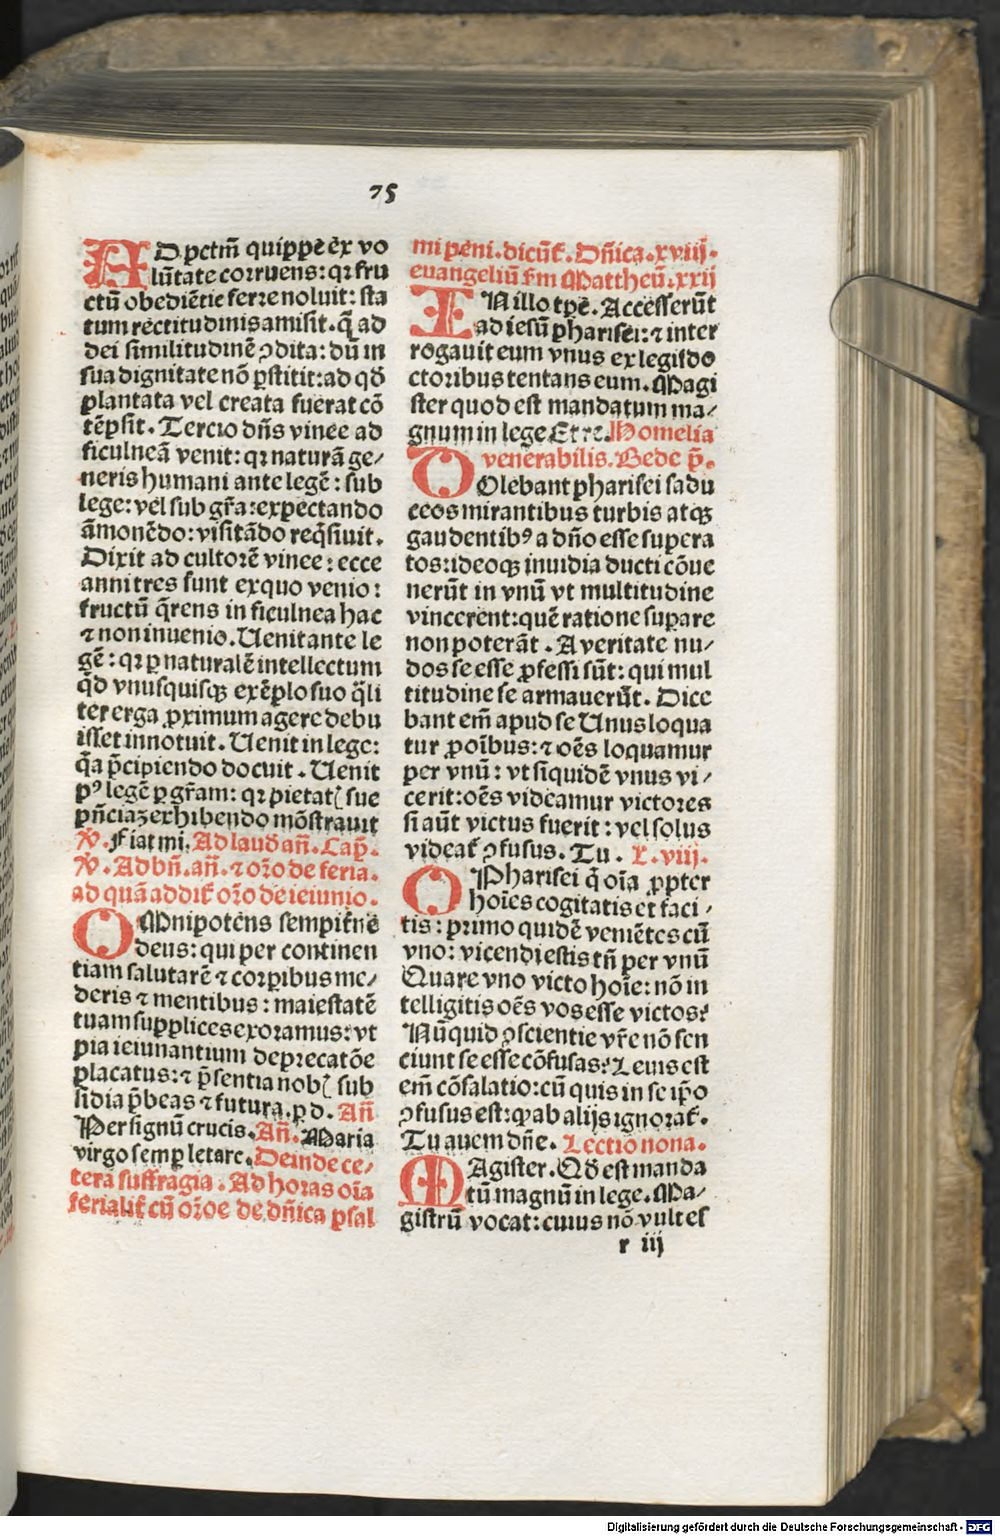 75
AD pctm̄ quippe ex vo
lūtate corruens: qꝛ fru
ctū obediētie ferre noluit: sta
tum rectitudinis amisit. q̄ ad
dei similitudinē ꝯdita: dū in
sua dignitate nō ꝑstitit: ad qđ
plantata vel creata fuerat cō
tēpsit. Tercio dn̄s vinee ad
ficulneā venit: qꝛ naturā ge⸗
neris humani ante legē: sub
lege: vel sub gr̄a: expectando
āmonēdo: visitādo req̄siuit.
Dixit ad cultorē vinee: ecce
anni tres sunt ex quo venio:
fructū q̄rens in ficulnea hac
⁊ non inuenio. Uenit ante le
gē: qꝛ ꝑ naturalē intellectum
qđ vnusquisqꝫ exēplo suo q̄li
ter erga ꝓximum agere debu
isset innotuit. Uenit in lege:
q̄a p̄cipiendo docuit. Uenit
pꝰ legē ꝑ gr̄am: qꝛ pietatꝭ sue
pn̄ciaꝫ exhibendo mōstrauit
℣. Fiat mi. Ad laud̄ an̄. Cap̄.
℣. Ad bn̄. an̄. ⁊ or̄o de feria.
ad quā addit᷑ or̄o de ieiunio.
OMnipotens sempit᷑ne
deus: qui per continen
tiam salutarē ⁊ corꝑibus me⸗
deris ⁊ mentibus: maiestatē
tuam supplices exoramus: vt
pia ieiunantium deprecatōe
placatus: ⁊ p̄sentia nobꝭ sub
sidia p̄beas ⁊ futura. ꝑ d. An̄
Per signū crucis. An̄. Maria
virgo semꝑ letare. Deinde ce⸗
tera suffragia. Ad horas oīa
ferialit᷑ cū or̄oe de dn̄ica p̄sal
mi peni. dicūt᷑. Dn̄ica. xviij.
euangeliū fm Mattheū. xxij
IN illo tp̄e. Accesserūt
ad iesū pharisei: ⁊ inter
rogauit eum vnus ex legisdo
ctoribus tentans eum. Magi
ster quod est mandatum ma⸗
gnum in lege Et re. Homelia
venerabilis. Bede p̄.
DOlebant pharisei sadu
ceos mirantibus turbis atqꝫ
gaudentibꝰ a dn̄o esse supera
tos: ideoqꝫ inuidia ducti cōue
nerūt in vnū vt multitudine
vincerent: quē ratione supare
non poterāt. A veritate nu⸗
dos se esse ꝓfessi sūt: qui mul
titudine se armauerūt. Dice
bant em̄ apud se Unus loqua
tur ꝓ oībus: ⁊ oēs loquamur
per vnū: vt siquidē vnus vi⸗
cerit: oēs videamur victores
si aūt victus fuerit: vel solus
videat᷑ ꝯfusus. Tu. L. viij.
O Pharisei q̄ oīa ꝓpter
hoīes cogitatis et faci⸗
tis: primo quidē veniētes cū
vno: vicendi estis tn̄ per vnū
Quare vno victo hoīe: nō in
telligitis oēs vos esse victos?
Nūquid ꝯscientie vr̄e nō sen
ciunt se esse cōfusas? Leuis est
em̄ cōsalatio: cū quis in se ip̄o
ꝯfusus est: qꝙ ab alijs ignorat᷑.
Tu auem dn̄e. Lectio nona.
MAgister. Qđ est manda
tū magnū in lege. Ma⸗
gistrū vocat: cuius nō vult es
r iij
Digitalisierung gefördert durch die Deutsche Forschungsgemeinschaft - DFG